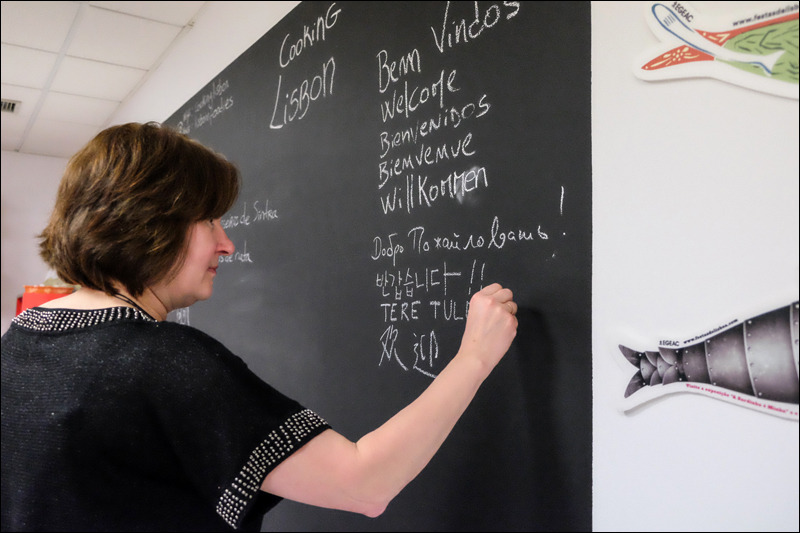 Cooking
Lisbon
Bem Vindos
Welcome
Bienvenidos
Bienvemue
Willkommen
Добро Пожайловать!
반갑습니다!!
TERE TUL
欢迎
de Sintra
EGEAC
www.festasdelisboa.com
EGEAC
www.festasdelisboa.com
Visite a exposição "A Sardinha é Minha"